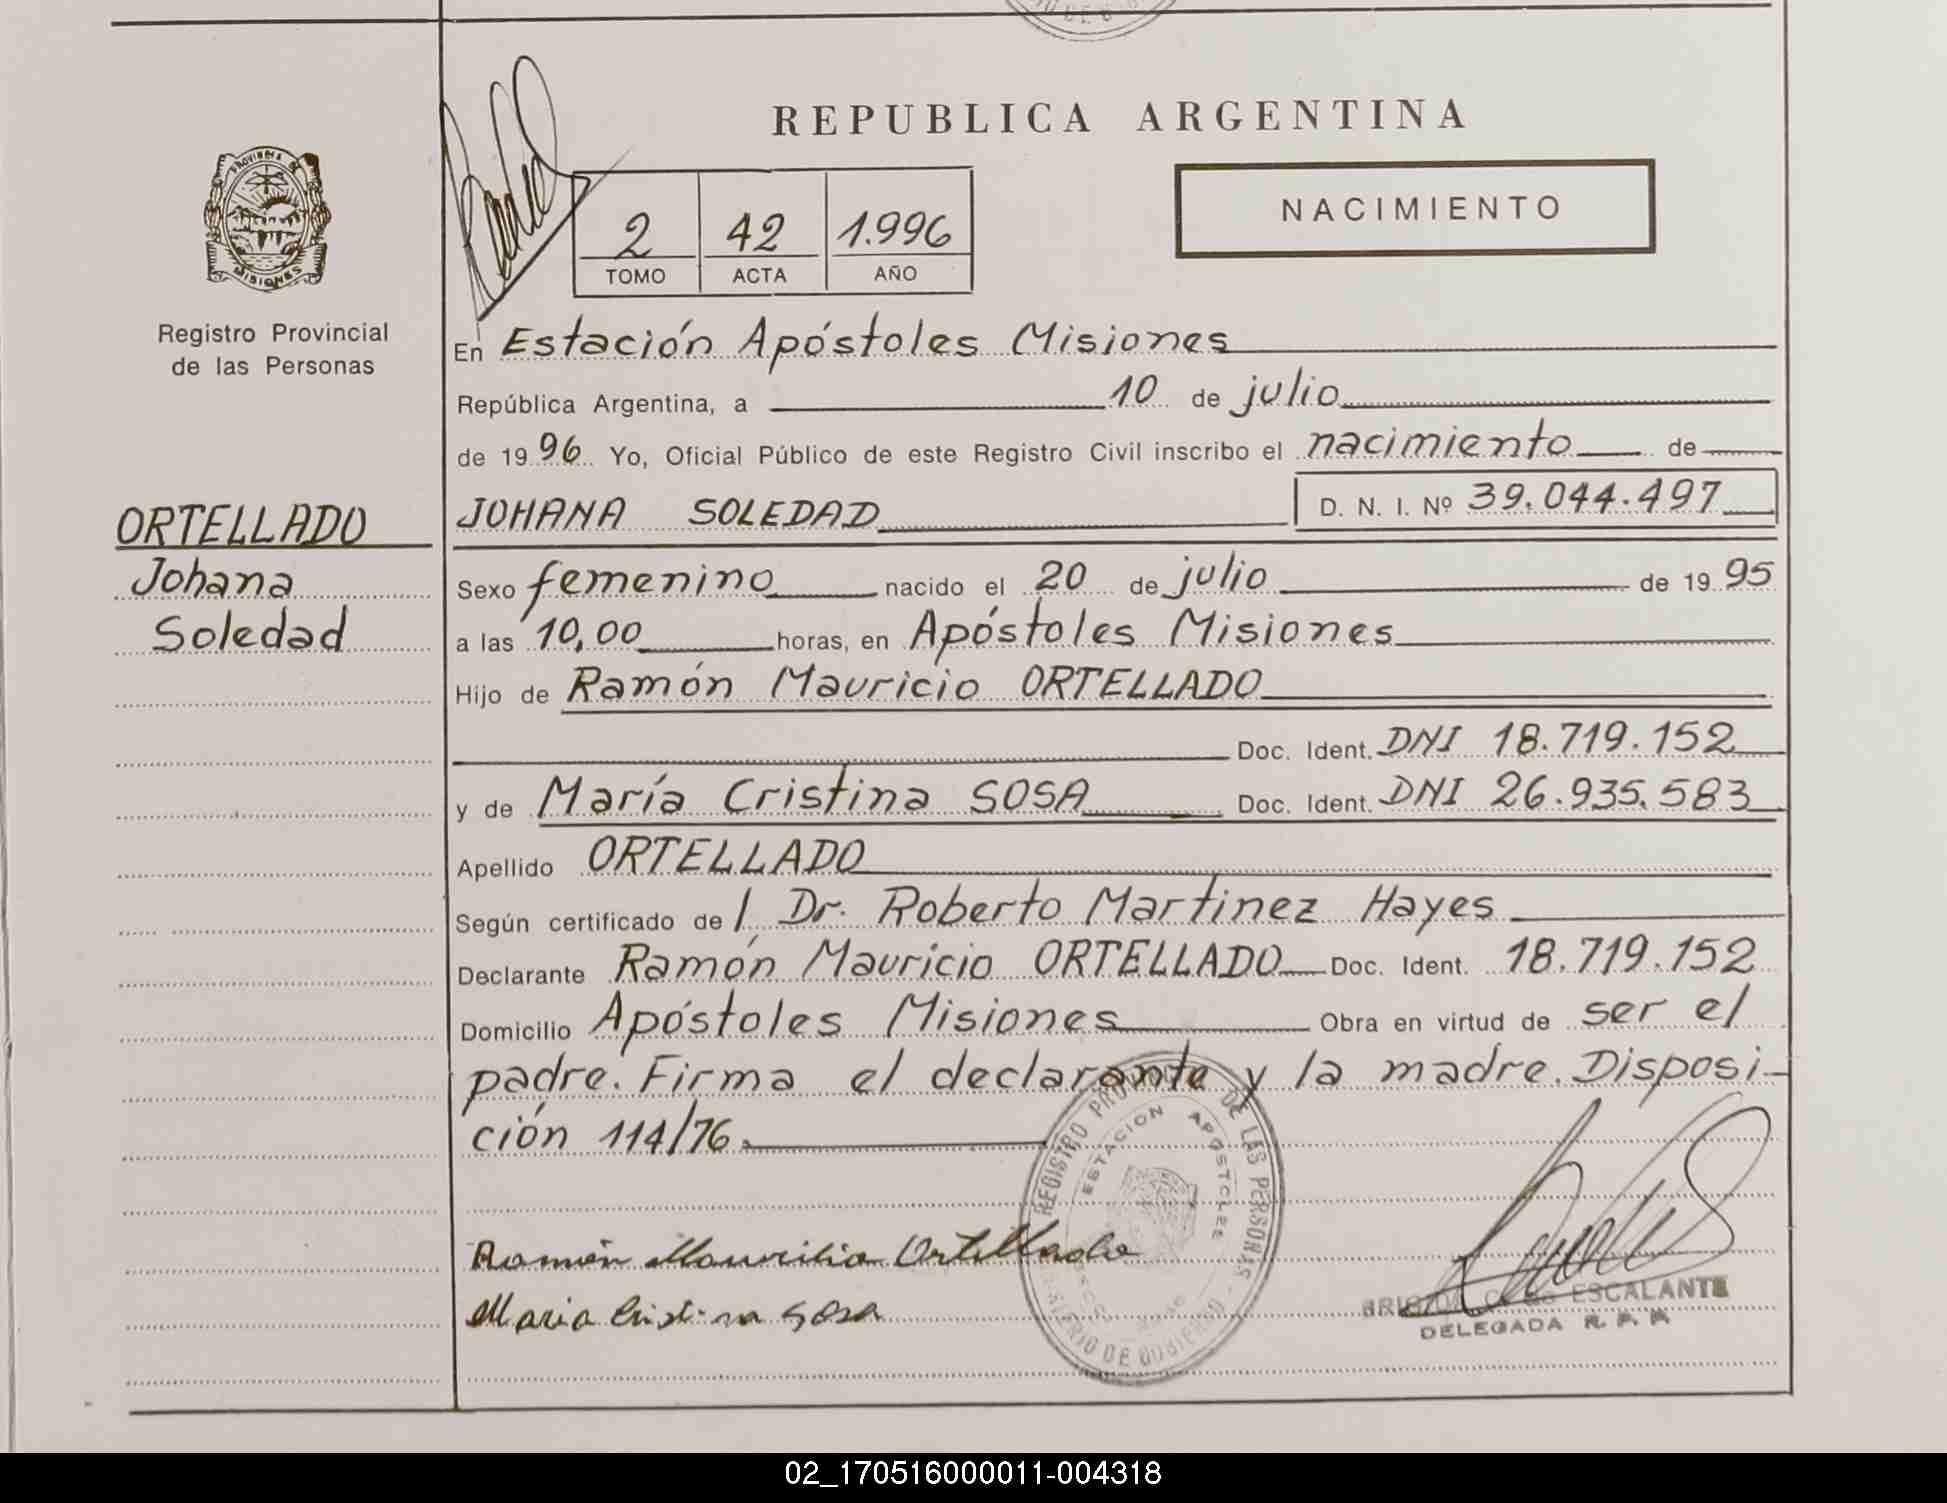 REPUBLICA ARGENTINA
PROVINCIA DE MISIONES
Registro Provincial
de las Personas
2 42 1.996
TOMO ACTA AÑO
NACIMIENTO
En Estación Apóstoles Misiones
República Argentina, a 10 de julio
de 19 96 Yo, Oficial Público de este Registro Civil inscribo el nacimiento de
ORTELLADO
Johana
Soledad
JOHANA SOLEDAD D. N. I. Nº 39.044.497
Sexo femenino nacido el 20 de julio de 19 95
a las 10,00 horas, en Apóstoles Misiones
Hijo de Ramón Mauricio ORTELLADO
Doc. Ident. DNI 18.719.152
y de María Cristina SOSA Doc. Ident. DNI 26.935.583
Apellido ORTELLADO
Según certificado de l Dr. Roberto Martinez Hayes
Declarante Ramón Mauricio ORTELLADO Doc. Ident. 18.719.152
Domicilio Apóstoles Misiones Obra en virtud de ser el
padre. Firma el declarante y la madre. Disposi-
ción 114/76
REGISTRO PROVINCIAL DE LAS PERSONAS
ESTACION APOSTOLES
MINISTERIO DE GOBIERNO
Ramón Mauricio Ortellado
Maria Cristina Sosa
ESCALANTE
DELEGADA R. P. P.
02_170516000011-004318